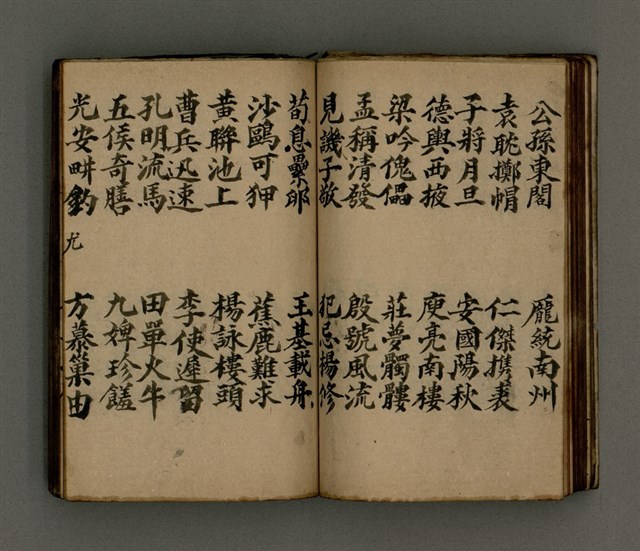 公孫東閣　龐統南州
袁耽擲帽　仁傑攜裘
子將月旦　安國陽秋
德輿西掖　庾亮南樓
梁吟傀儡　莊夢髑髏
孟稱清發　殷號風流
見譏子敬　犯忌楊修
荀息纍卵　王基載舟
沙鷗可狎　蕉鹿難求
黃聯池上　楊詠樓頭
曹兵迅速　李使遲留
孔明流馬　田單火牛
五侯奇膳　九婢珍饈
光安畊釣　尤　方慕巢由